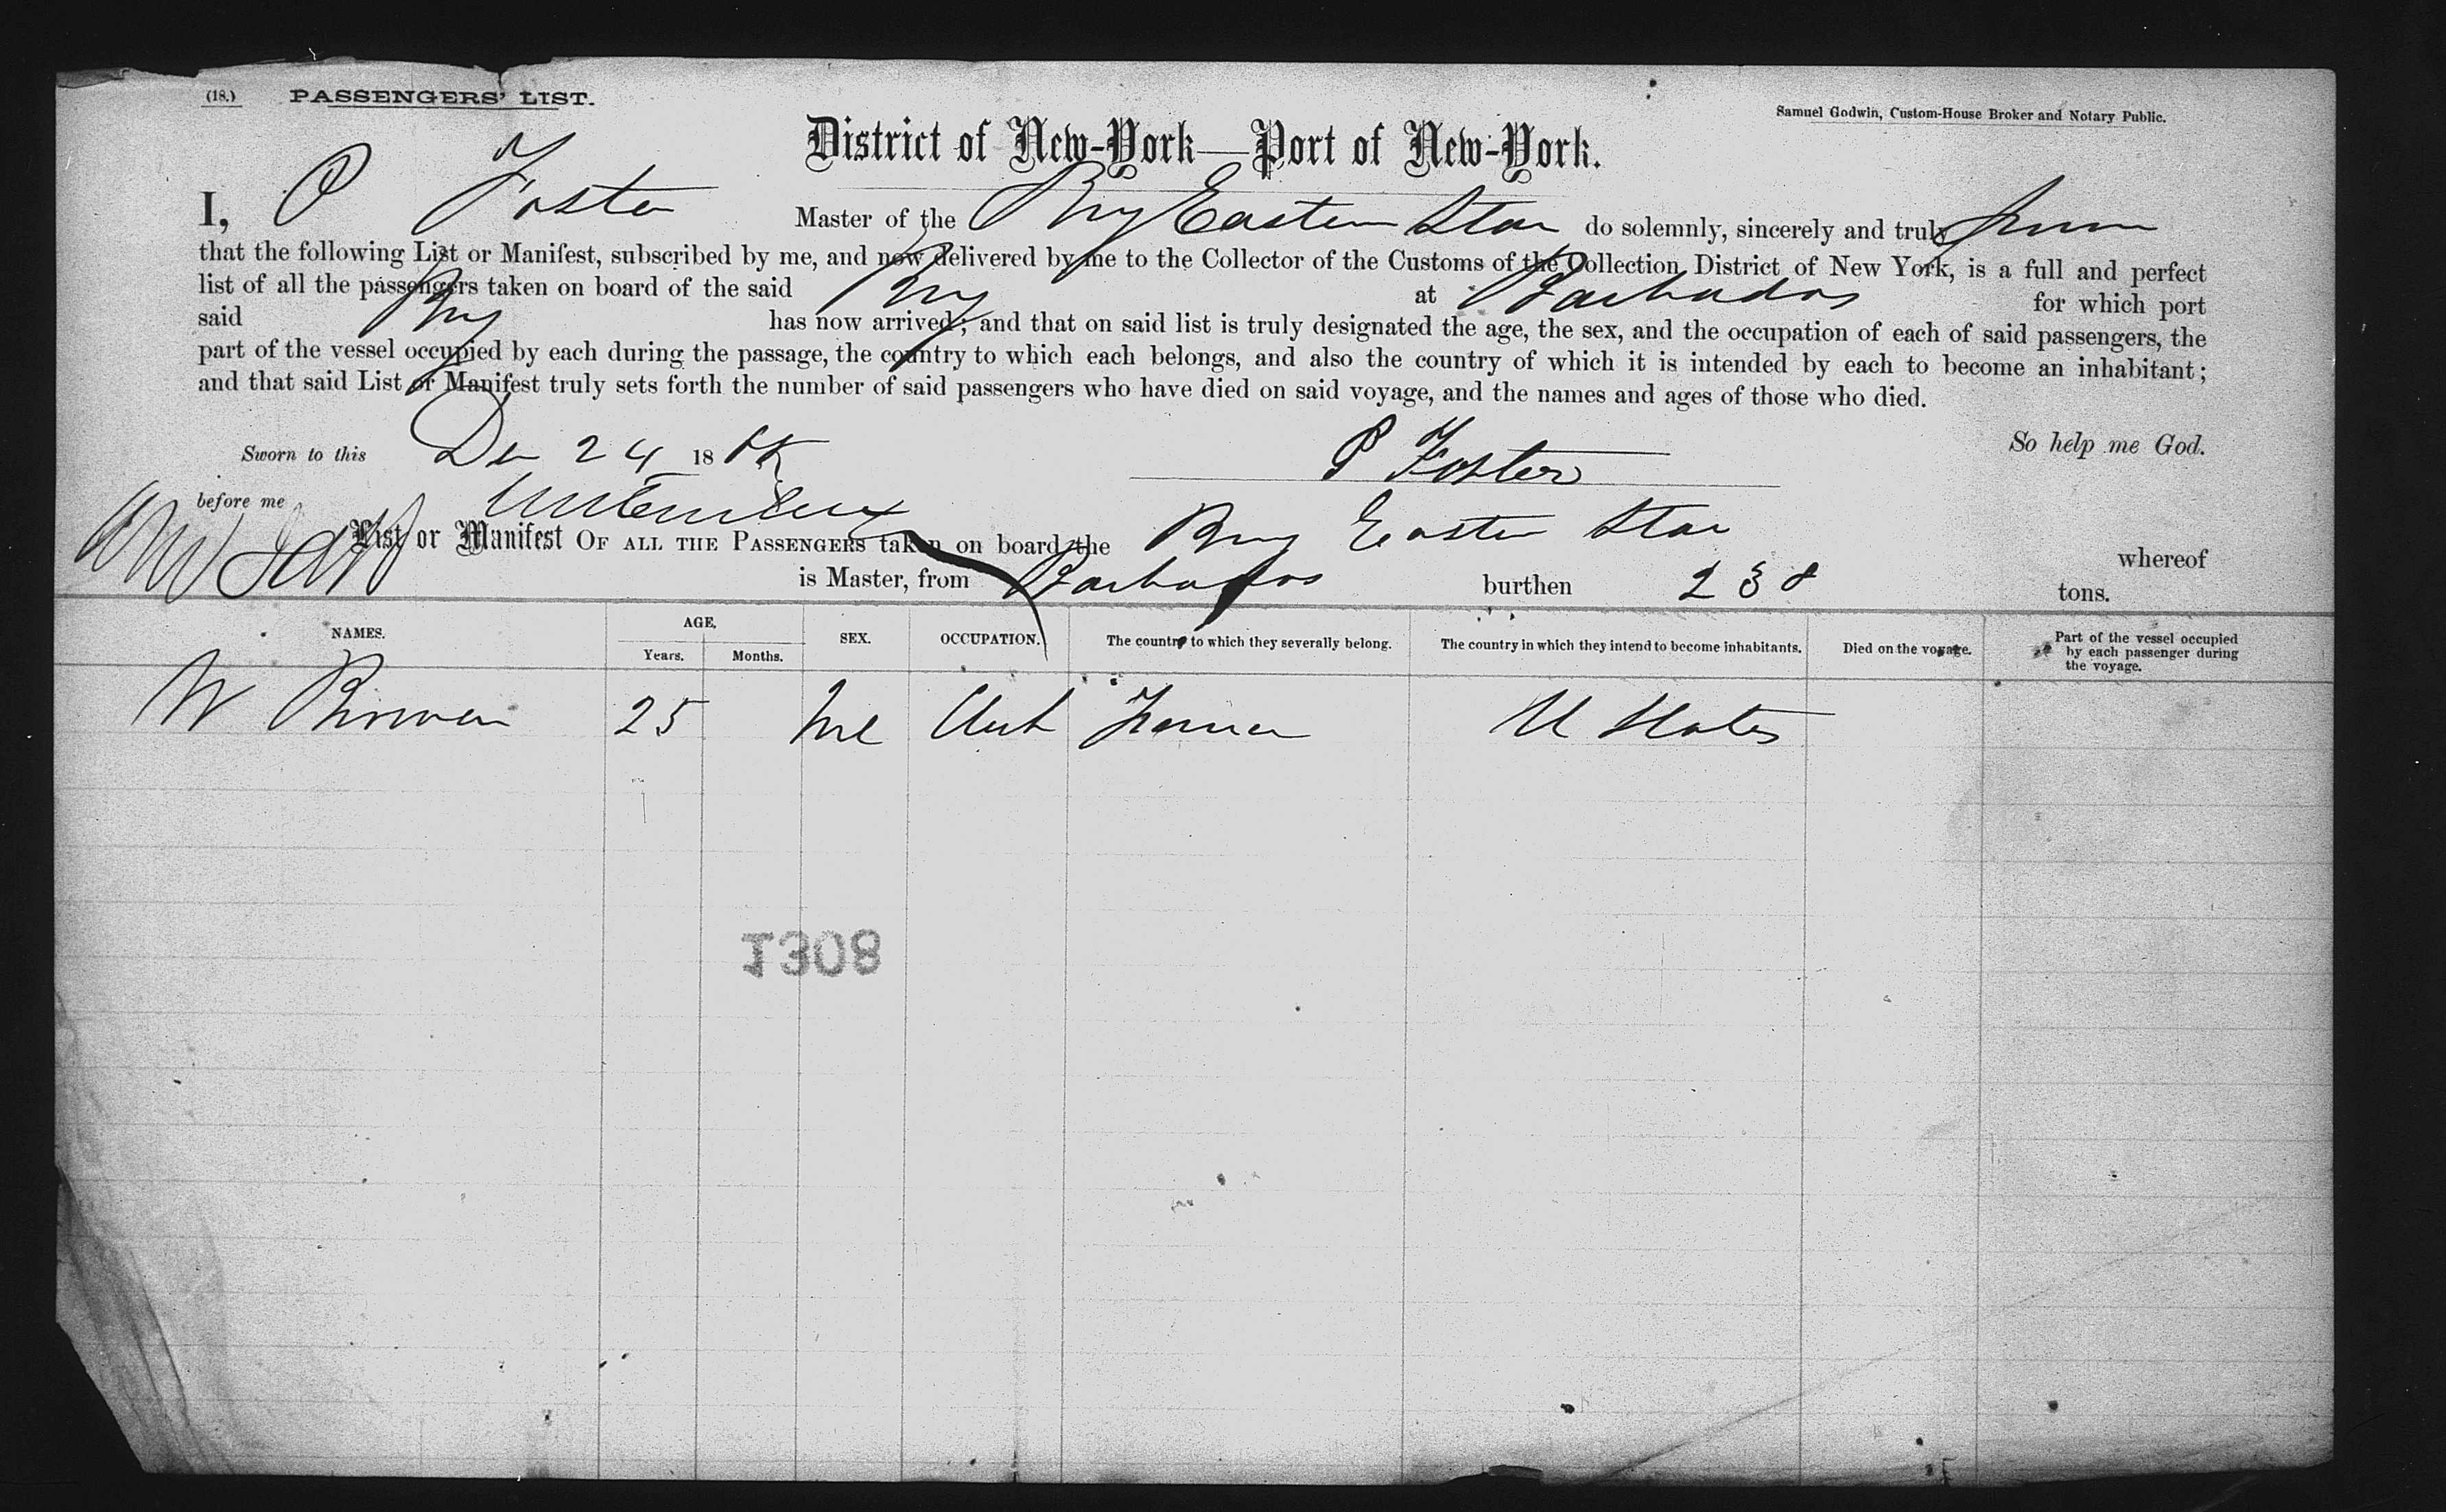 (18.) PASSENGERS' LIST.
Samuel Godwin, Custom-House Broker and Notary Public.
District of New-York—Port of New-York.
I, P Foster Master of the Brig Eastern Star do solemnly, sincerely and truly swear
that the following List or Manifest, subscribed by me, and now delivered by me to the Collector of the Customs of the Collection District of New York, is a full and perfect
list of all the passengers taken on board of the said Brig at Barbados for which port
said Brig has now arrived; and that on said list is truly designated the age, the sex, and the occupation of each of said passengers, the
part of the vessel occupied by each during the passage, the country to which each belongs, and also the country of which it is intended by each to become an inhabitant;
and that said List or Manifest truly sets forth the number of said passengers who have died on said voyage, and the names and ages of those who died.
So help me God.
Sworn to this Dec 24 18 P Foster
before me
List or Manifest OF ALL THE PASSENGERS taken on board the Brig Eastern Star whereof
is Master, from Barbados burthen 238 tons.
NAMES. AGE, Years. Months. SEX. OCCUPATION. The country to which they severally belong. The country in which they intend to become inhabitants. Died on the voyage. Part of the vessel occupied by each passenger during the voyage.
W 25 U States
1308